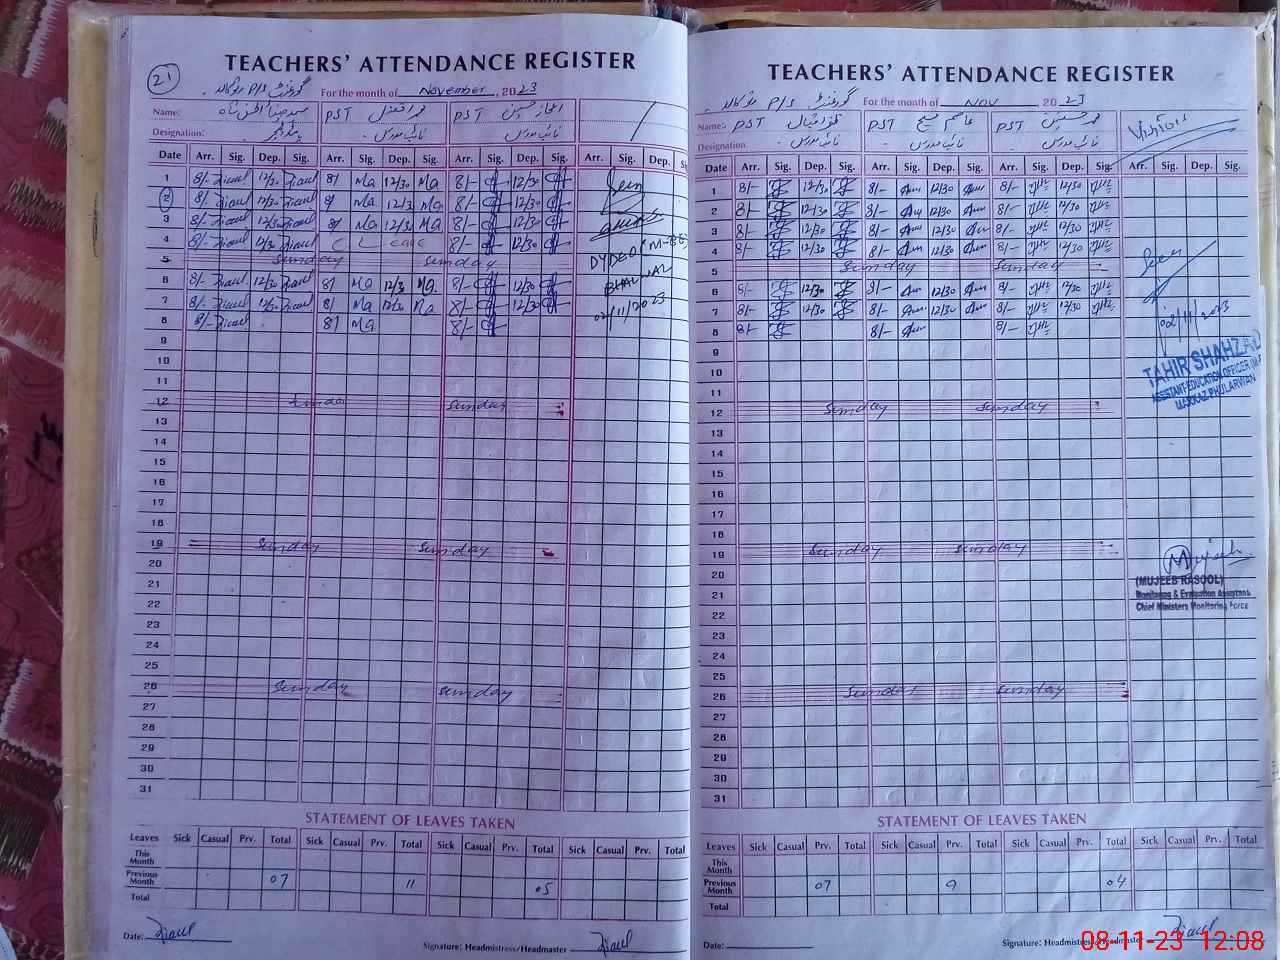 21
TEACHERS' ATTENDANCE REGISTER
گورنمنٹ P/S
For the month of November, 2023
Name: PST PST
Designation: نائب مدرس نائب مدرس
Date Arr. Sig. Dep. Sig. Arr. Sig. Dep. Sig. Arr. Sig. Dep. Sig. Arr. Sig. Dep.
1 8/- 12/30 8/ Ma 12/30 Ma 8/- 12/30 Seen
2 8/- 8/ Ma 12/3 Ma 8/- 12/30
3 8/- 12/30 8/ Ma 12/30 Ma 8/- 12/30
4 8/- 12/30 C Leave 8/- 12/30
5 Sunday Sunday
6 8/- 12/30 8/ Ma 12/3 Ma 8/- 12/30 BHALWAL
7 8/- 12/30 8/ Ma 12/30 Ma 8/- 12/30 02/11/2023
8 8/- 8/ Ma 8/-
9
10
11
12 Sunday Sunday
13
14
15
16
17
18
19 Sunday Sunday
20
21
22
23
24
25
26 Sunday Sunday
27
28
29
30
31
STATEMENT OF LEAVES TAKEN
Leaves Sick Casual Prv. Total Sick Casual Prv. Total Sick Casual Prv. Total Sick Casual Prv. Total
This Month
Previous Month 07 11 05
Total
Date:
Signature: Headmistress/Headmaster
TEACHERS' ATTENDANCE REGISTER
گورنمنٹ P/S
For the month of Nov 2023
Name: PST PST PST Visitors
Designation نائب مدرس نائب مدرس نائب مدرس
Date Arr. Sig. Dep. Sig. Arr. Sig. Dep. Sig. Arr. Sig. Dep. Sig. Arr. Sig. Dep. Sig.
1 8/- 12/30 8/- 12/30 8/- 12/30
2 8/- 12/30 8/- 12/30 8/- 12/30
3 8/- 12/30 8/- 12/30 8/- 12/30
4 8/- 12/30 8/- 12/30 8/- 12/30
5 Sunday Sunday
6 8/- 12/30 8/- 12/30 8/- 12/30
7 8/- 12/30 8/- 12/30 8/- 12/30
8 8/- 8/- 8/-
Seen
02/11/2023
9
TAHIR SHAHZAD
10
ASSISTANT EDUCATION OFFICER
11
MARKAZ PHULARWAN
12 Sunday Sunday
13
14
15
16
17
18
19 Sunday Sunday
20
(MUJEEB RASOOL)
21
Monitoring & Evaluation Assistant
Chief Ministers Monitoring Force
22
23
24
25
26 Sunday Sunday
27
28
29
30
31
STATEMENT OF LEAVES TAKEN
Leaves Sick Casual Prv. Total Sick Casual Prv. Total Sick Casual Prv. Total Sick Casual Prv. Total
This Month
Previous Month 07 9 04
Total
Date:
Signature: Headmistress/Headmaster
08-11-23 12:08